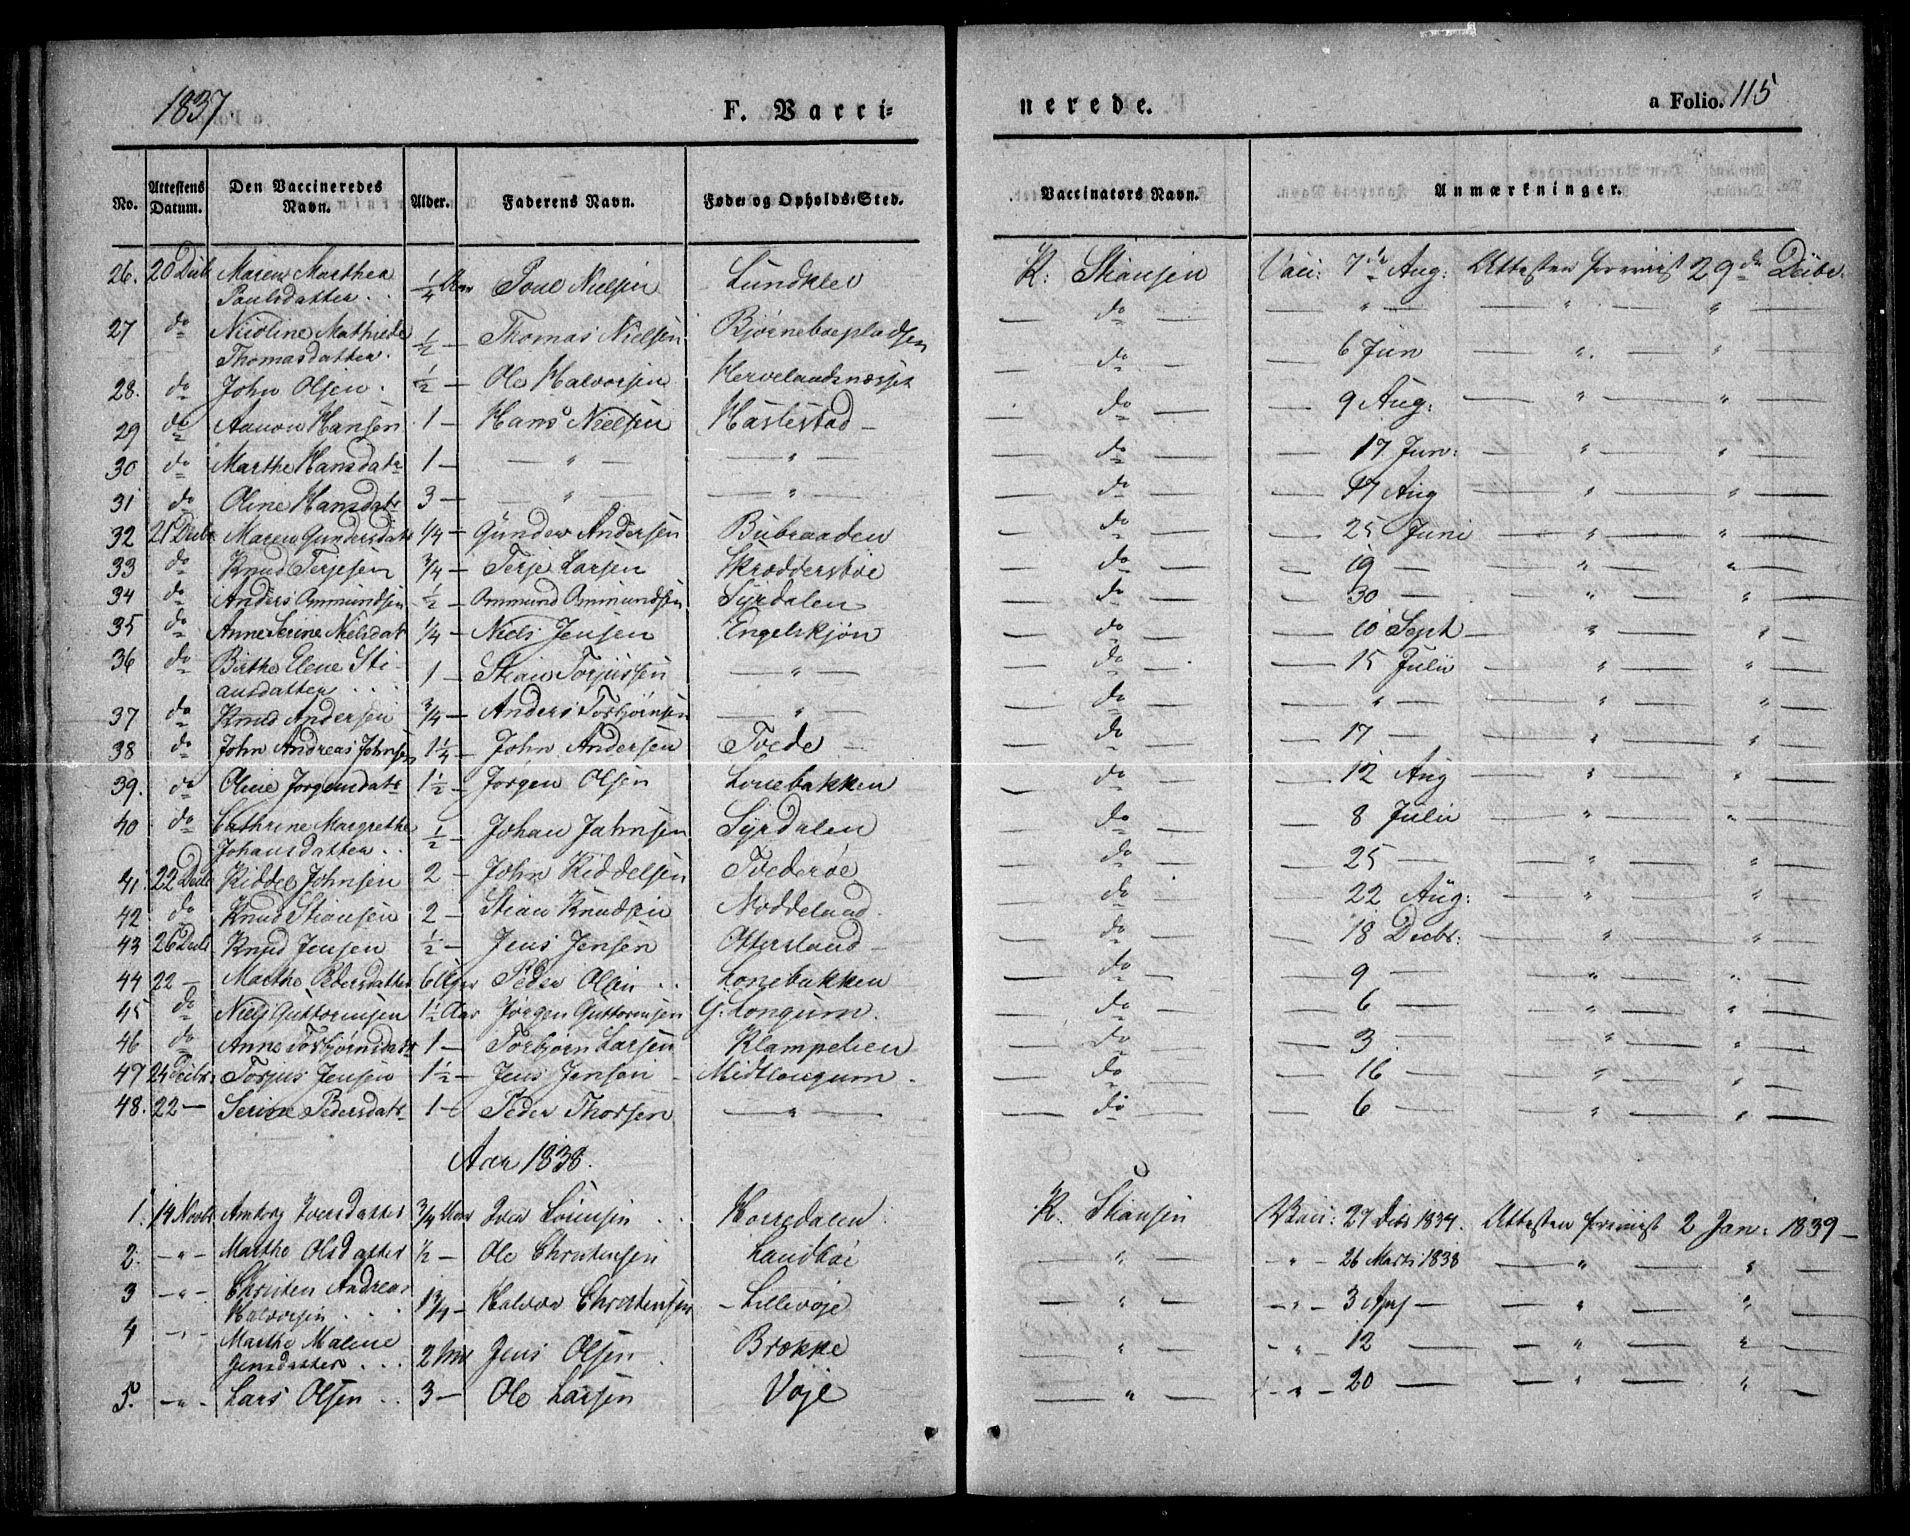 1837 F. Vacci= nerede. a Folio. 115
No. Attestens Datum. Den Vaccineredes Navn. Alder. Faderens Navn. Føde= og Opholds=Sted. Vaccinators Navn. Anmærkninger.
26. 20 Decb Maren Marthea Poulsdatter . . 1/4 Aar Poul Nielsen Lundklev K: Stiansen Vacc: 7de Aug: Attesten forevist 29de Decbr.
27 do Nicoline Mathilde Thomasdatter. 1/2 — Thomas Nielsen Bjørneboepladsen — do — — " — — " — " —
28. do John Olsen. 1/2 — Ole Halvorsen Hervelandsnesset — do — — 6 Jun — " — " —
29 do Aanon Hansen 1 — Hans Nielsen Haslestad — — do — — 9 Aug: — " — " —
30 do Marthe Hansdatr 1 — — " — — " — — do — — 17 Jun: — " — " —
31 do Oline Hansdatr 3 — — " — — " — — do — — 17 Aug — " — " —
32 21 Decbr Maren Gundersdatr 1/4 — Gunder Andersen Bubraaden — do — — 25 Juni — " — " —
33 do Knud Terjesen 3/4 — Terje Larsen Skrødderstøe — do — — 19 — — " — " —
34 do Anders Ommundsen 1/2 — Ommund Ommundsen Syrdalen — do — — 30 — — " — " —
35 do Anne Serine Nielsdatr 1/4 — Niels Jensen Engelskjøn — do — — 10 Sept — " — " —
36 do Birthe Elene Sti-
ansdatter . . . 1 — Stian Torjussen — " — — do — — 15 Julii — " — " —
37 do Knud Andersen 3/4 — Anders Torbjørnsen — " — — do — — " — — " — " —
38 do John Andreas Johnsen 1 1/4 — John Andersen Tvede — — do — — 17 — — " — " —
39. do Oline Jørgensdatr 1 1/2 — Jørgen Olsen Lonebakken — do — — 12 Aug — " — " —
40 do Cathrine Margrethe
Johansdatter . . 1/2 — Johan Jahnsen Syrdalen — do — — 8 Julii — " — " —
41. 22 Decb Kiddel Johnsen 2 — John Kiddelsen Tvederøe — do — — 25 — — " — " —
42 do Knud Stiansen 2 — Stian Knudsen Noddeland — do — — 22 Aug: — " — " —
43 26 Decb Knud Jensen 1/2 — Jens Jensen Oftersland — — do — — 18 Decbr: — " — " —
44 22 — Marthe Pedersdatter 6 Uger Peder Olsen . . Lonebakken — do — — 9 — — " — " —
45 do Niels Guttormsen 1 1/2 Aar Jørgen Guttormsen G. Longum. — do — — 6 — — " — " —
46 do Anne Torbjørnsdatr 1 — Torbjørn Larsen Klampelien — do — — 3 — — " — " —
47 24 Decbr Torjus Jensen 1 1/2 — Jens Jensen Midtlongum. — do — — 16 — — " — " —
48. 22 — Serine Pedersdatr 1 — Peder Thorsen — " — — do — — 6 — — " — " —
Aar 1838.
1. 14 Novbr Iversdatter 3/4 Aar Iver . . Korredalen K. Stiansen Vacc: 27 Decbr 1837. Attesten forevist 2 Jan: 1839 —
2. — " — Marthe Olsdatter 1/2 — Ole Christensen Landbøe — " — — " — 26 Marts 1838 — " — " —
3 — " — Christen Andreas
Halvorsen . . 1 3/4 — Halvor Christensen Lillevøje — " — — " — 3 Apr — — " — " —
4 — " — Marthe Malene
Jensdatter . . . 2 Mdr Jens Olsen . Brække — " — — " — 12 — — " — " —
5. — " — Lars Olsen . . 3 — Ole Larsen Vøje — " — — " — 20 — — " — " —